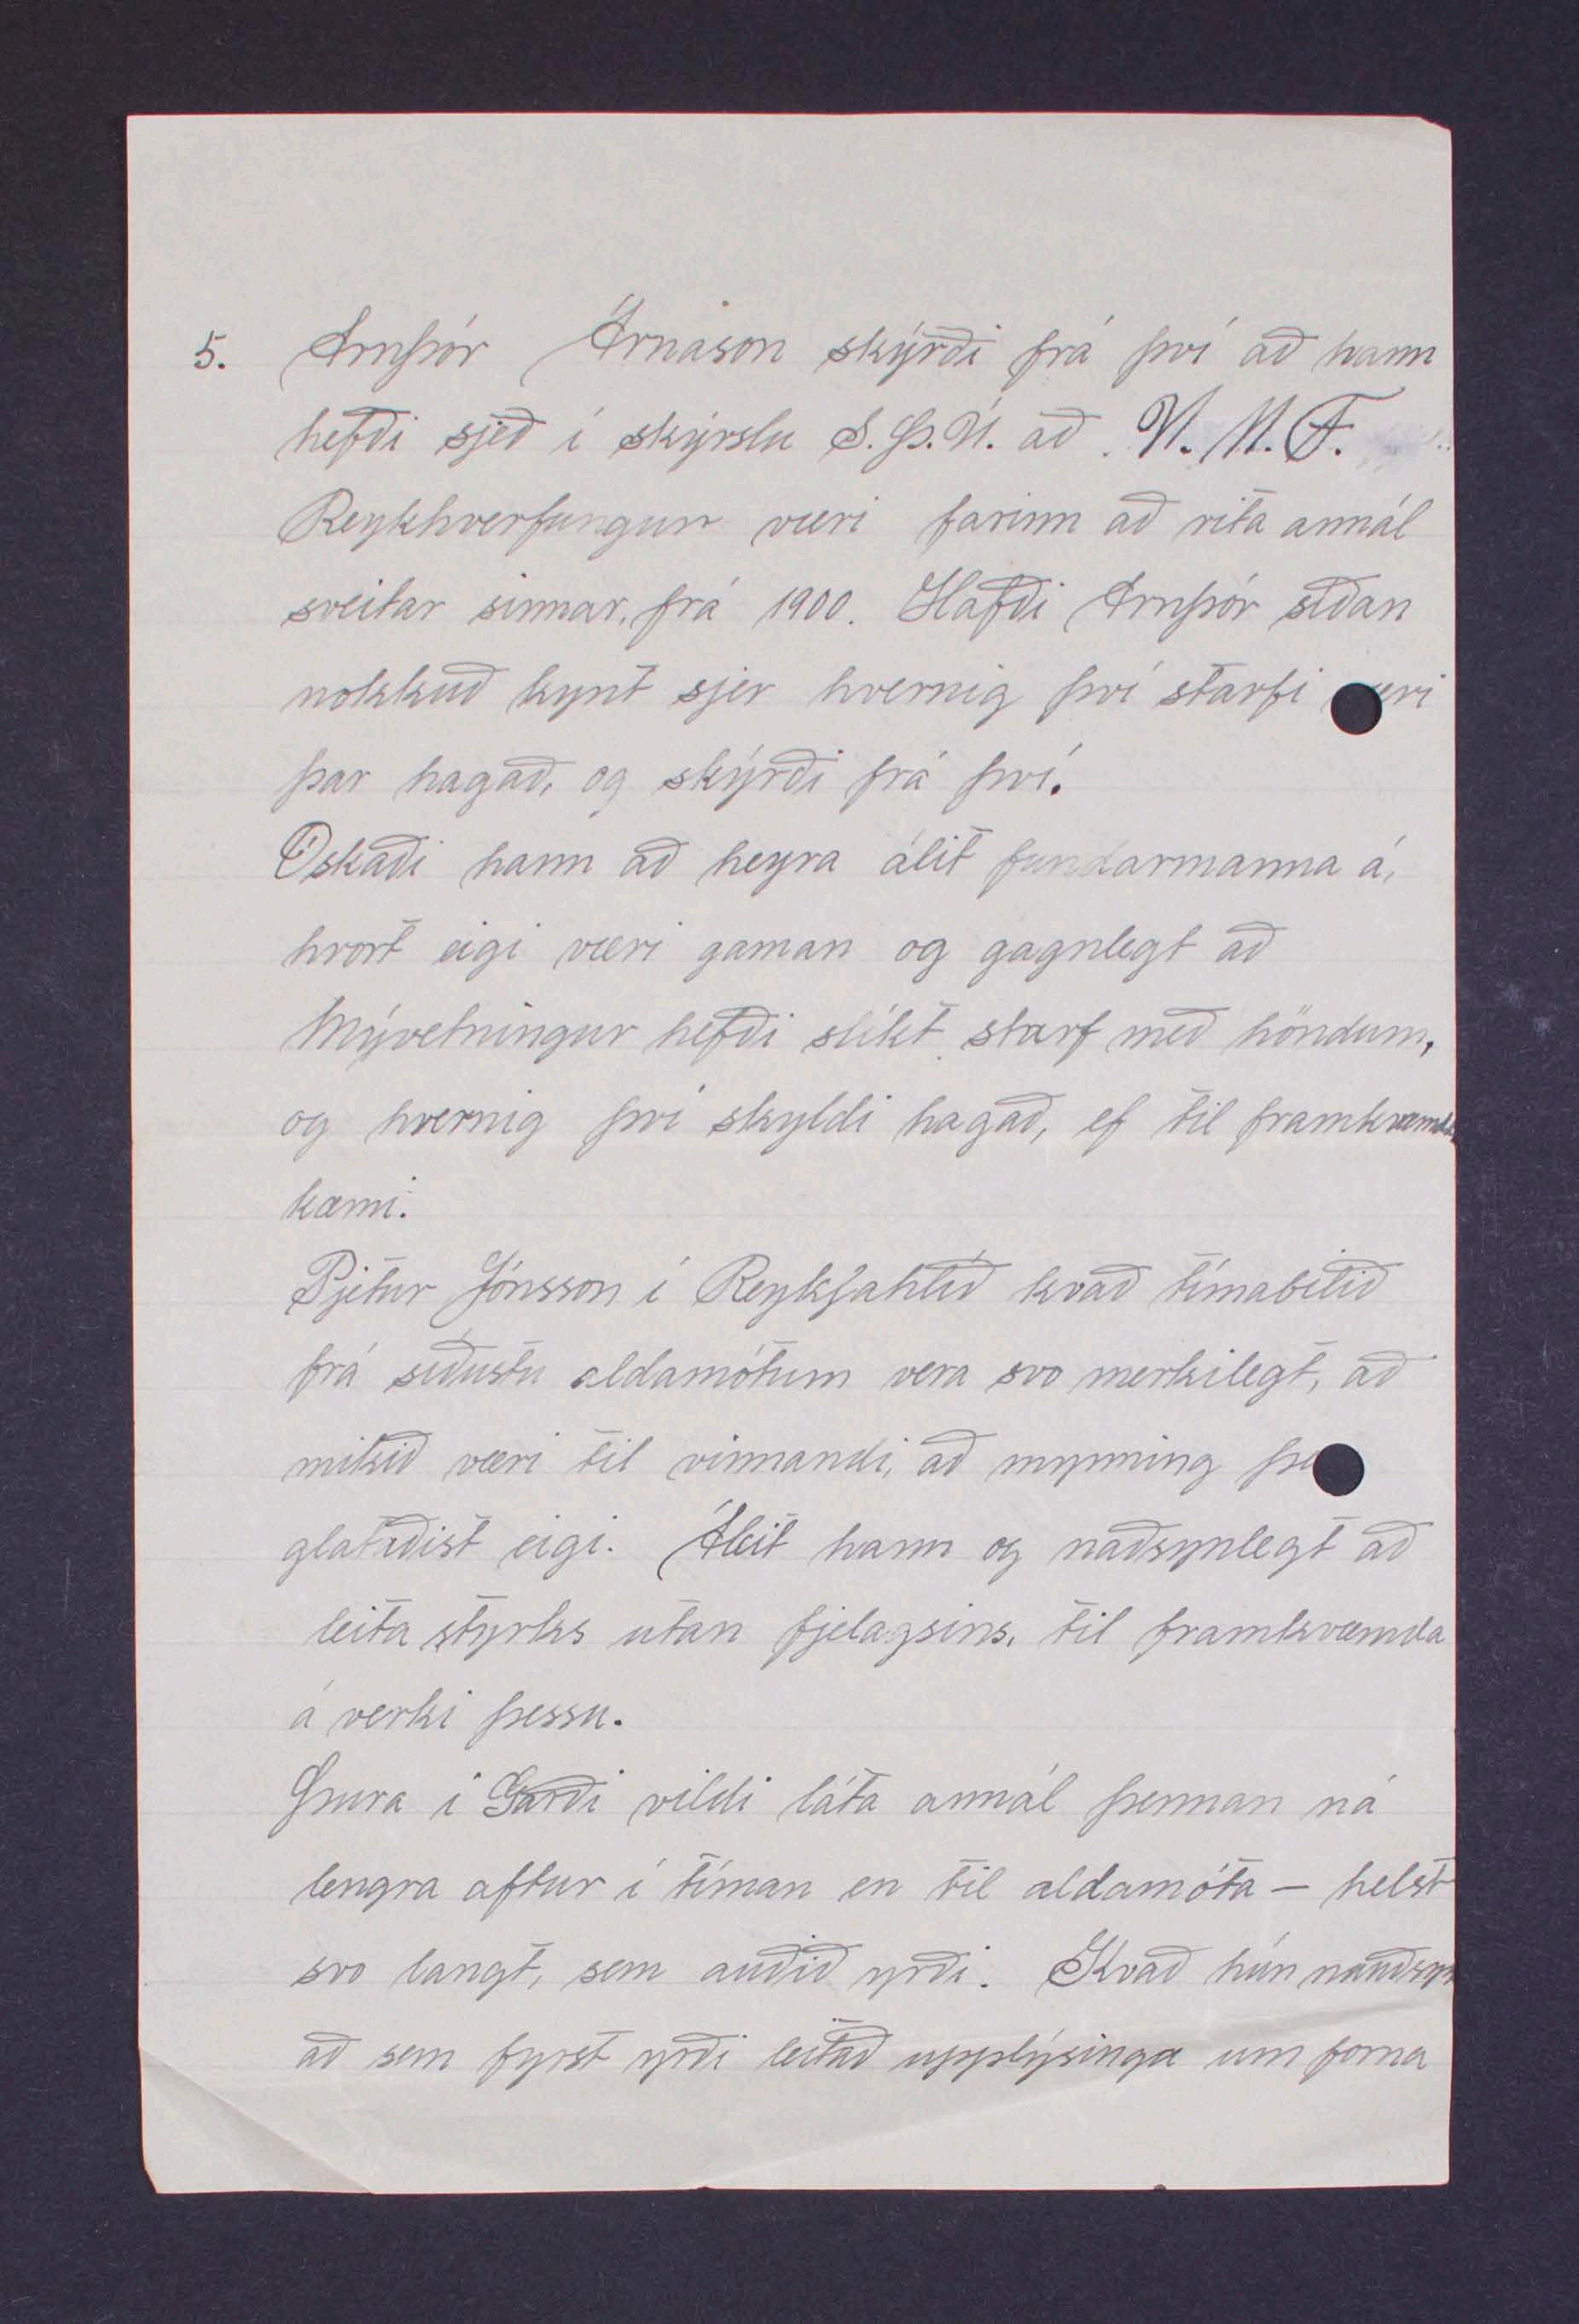 5. Arnþór Árnason skýrði frá því að hann
hefði sjeð í skýrslu S.Þ.U. að U.M.F.
Reykhverfungur væri farinn að rita annál
sveitar sinnar, frá 1900. Hafði Arnþór síðan
nokkuð kynt sjer hvernig því starfi væri
þar hagað, og skýrði frá því.
Óskaði hann að heyra álit fundarmanna á,
hvort eigi væri gaman og gagnlegt að
Mývetningur hefði slíkt starf með höndum,
og hvernig því skyldi hagað, ef til framkvæmda
kæmi.
Pjetur Jónsson í Reykjahlíð kvað tímabilið
frá síðustu aldamótum vera svo merkilegt, að
mikið væri til vinnandi, að mynning
glataðist eigi. Áleit hann og nauðsynlegt að
leita styrks utan fjelagsins, til framkvæmda
á verki þessu.
Þura í Garði vildi láta annál þennan ná
lengra aftur í tíman en til aldamóta — helst
svo langt, sem auðið yrði. Kvað hún nauðsyn
að sem fyrst yrði leitað upplýsinga um forna